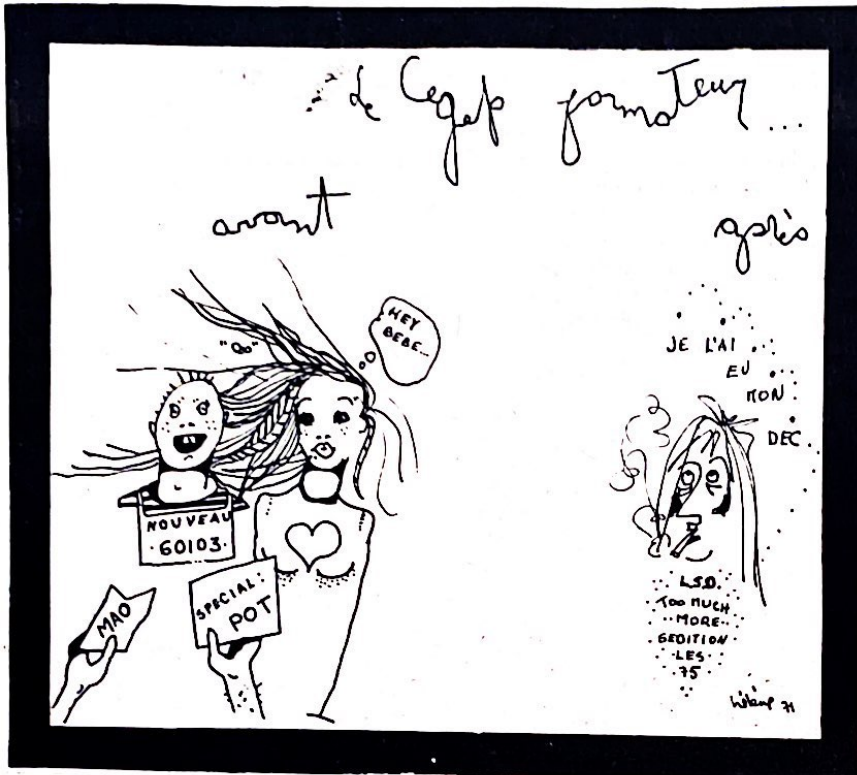 Le Cegep formateur...
avant
après
"Oo"
HEY
BEBE...
NOUVEAU
60103
MAO
SPECIAL:
POT
JE L'AI
EU
MON
DEC.
L.S.D.
TOO MUCH
MORE
SEDITION
LES
75
Hélène 71